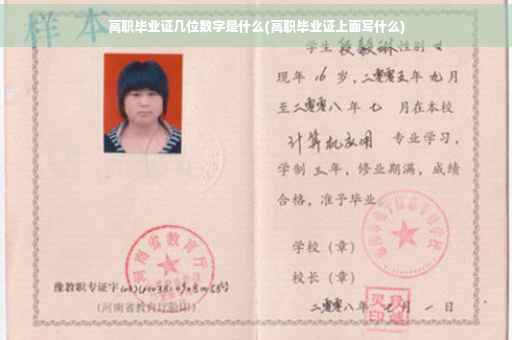 样本
高职毕业证几位数字是什么(高职毕业证上面写什么)
学生 段毅琳 性别 女
现年 16 岁，二零零五年 九 月
至二零零八 年 七 月在本校
计算机应用 专业学习，
学制 三 年，修业期满，成绩
合格，准予毕业
学校（章）
校长（章）
二零零八年 七 月 一 日
河南省教育厅
豫教职专证字
(河南省教育厅验印)